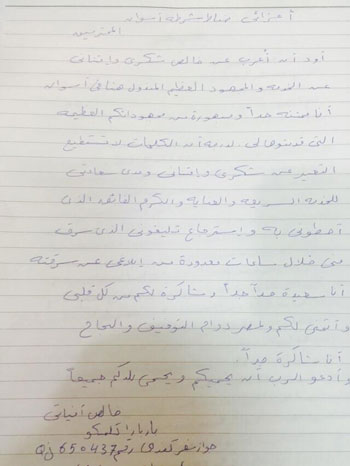 أعزائي الأشرطة أسوان
المحترمين
أود أن أعرب عن خالص شكري وإمتناني
عن الخدمة والمجهود العظيم المبذول هنا في أسوان
أنا ممتنة جداً ومسعورة من مجهوداتكم العظيمة
التي قدمتوها لي. لدرجة أن الكلمات لا تستطيع
التعبير عن شكري وإمتناني ومدى سعادتي
للخدمة السريعة والعناية والكرم الفائق الذي
أحطوني به وإسترجاع تليفوني الذي سرق
مني خلال ساعات معدودة من إبلاغي عن سرقته
أنا سعيدة جداً جداً وشاكرة لكم من كل قلبي
وأتمنى لكم ولمصر دوام التوفيق والنجاح
أنا شاكرة جداً.
وأدعو الرب أن يحميكم ويحمي بلدكم جميعاً
خالص أمنياتي
باربارا
جواز سفر رقم Qj650437